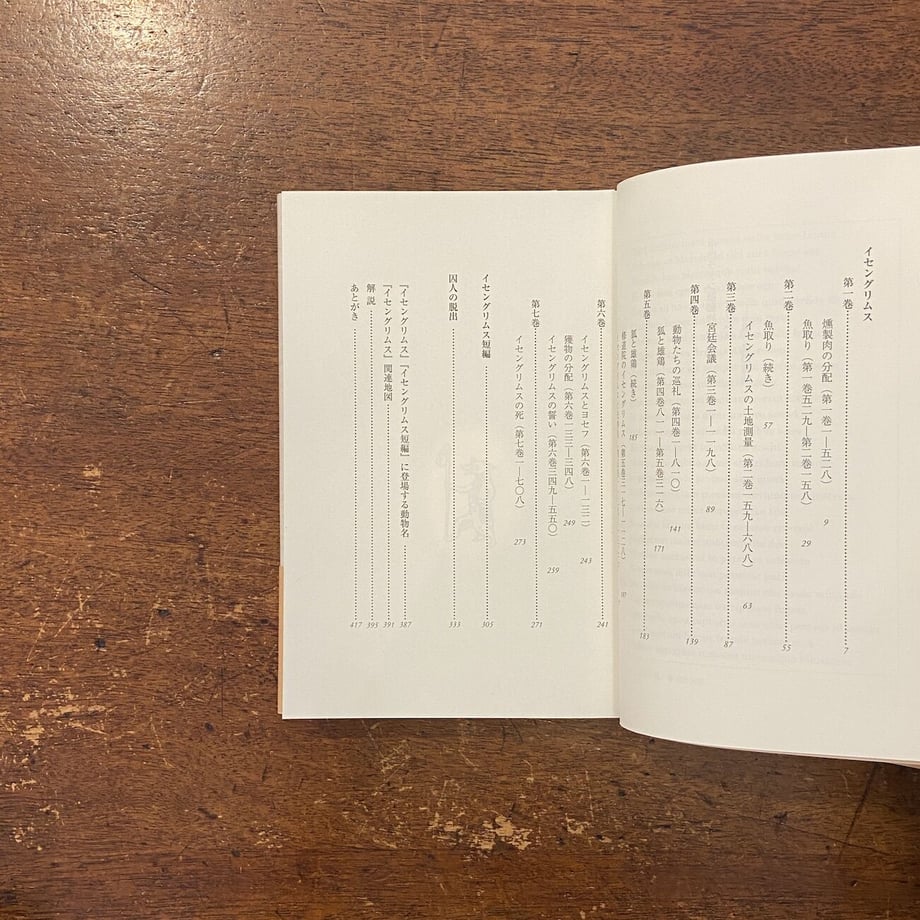 イセングリムス
第一巻 7
燻製肉の分配(第一巻一―五二八) 9
魚取り(第一巻五二九―第二巻一五八) 29
第二巻 55
魚取り(続き) 57
イセングリムスの土地測量(第二巻一五九―六八八) 63
第三巻 87
宮廷会議(第三巻一―一一九八) 89
第四巻 139
動物たちの巡礼(第四巻一―八一〇) 141
狐と雄鶏(第四巻八一一―第五巻三一六) 171
第五巻 183
狐と雄鶏(続き) 185
修道院のイセングリムス(第五巻三一七―
第六巻 241
イセングリムスとヨセフ(第六巻一―一三二) 243
獲物の分配(第六巻一三三―三四八) 249
イセングリムスの誓い(第六巻三四九―五五〇) 259
第七巻 271
イセングリムスの死(第七巻一―七〇八) 273
イセングリムス短編 305
囚人の脱出 333
『イセングリムス』『イセングリムス短編』に登場する動物名 387
『イセングリムス』関連地図 391
解説 395
あとがき 417